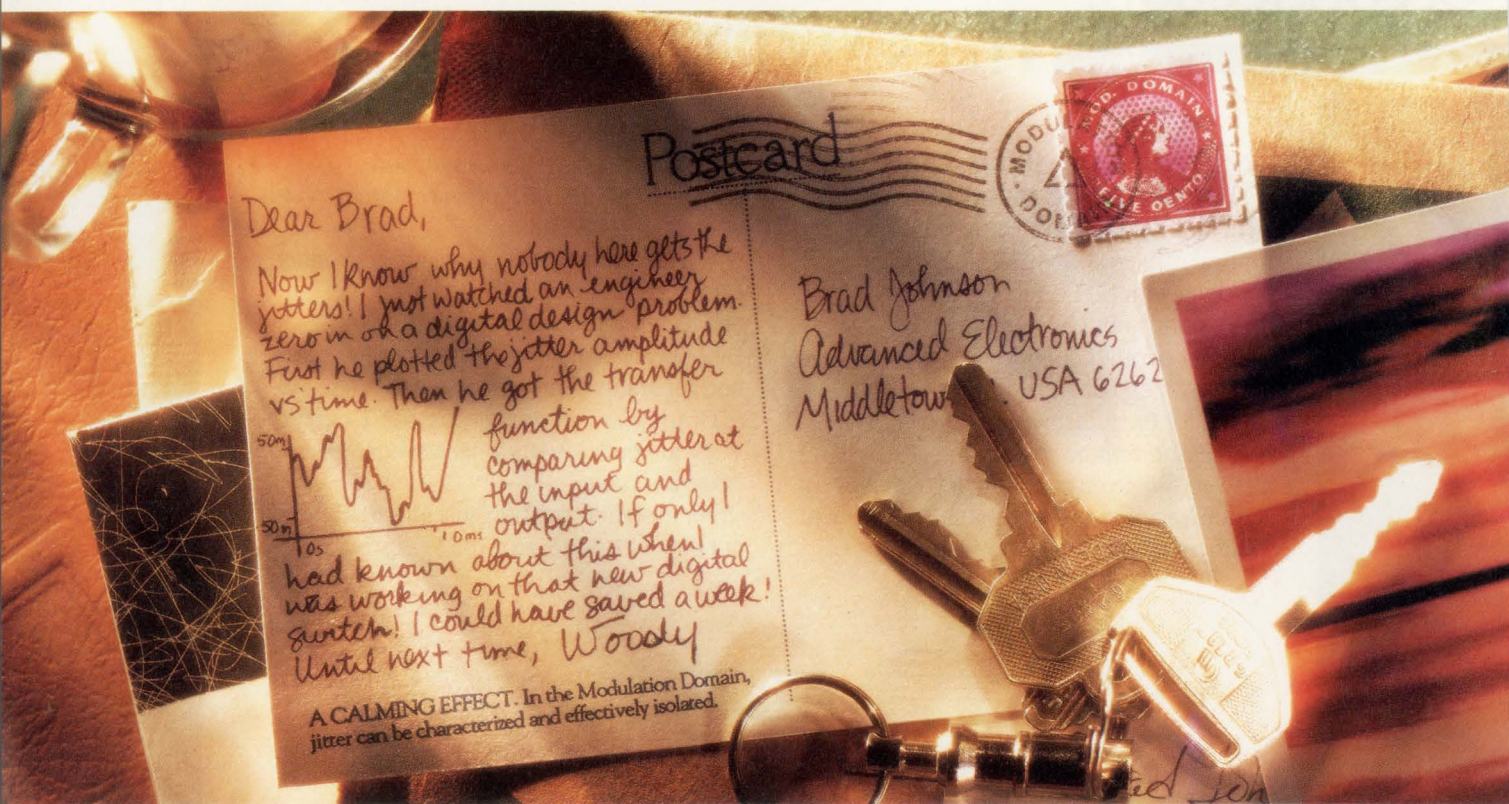 Postcard
MOD. DOMAIN
FIVE CENTO
MODU
DOMA
Dear Brad,
Now I know why nobody here gets the
jitters! I just watched an engineer
zero in on a digital design problem.
First he plotted the jitter amplitude
vs time. Then he got the transfer
function by
comparing jitter at
the input and
output. If only I
had known about this when I
was working on that new digital
switch! I could have saved a week!
Until next time, Woody
50m
50m
0s
10ms
A CALMING EFFECT. In the Modulation Domain,
jitter can be characterized and effectively isolated.
Brad Johnson
Advanced Electronics
USA 6262